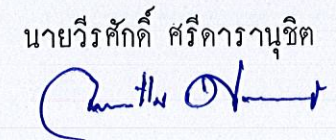 นายวีรศักดิ์ ศรีดารานุชิต